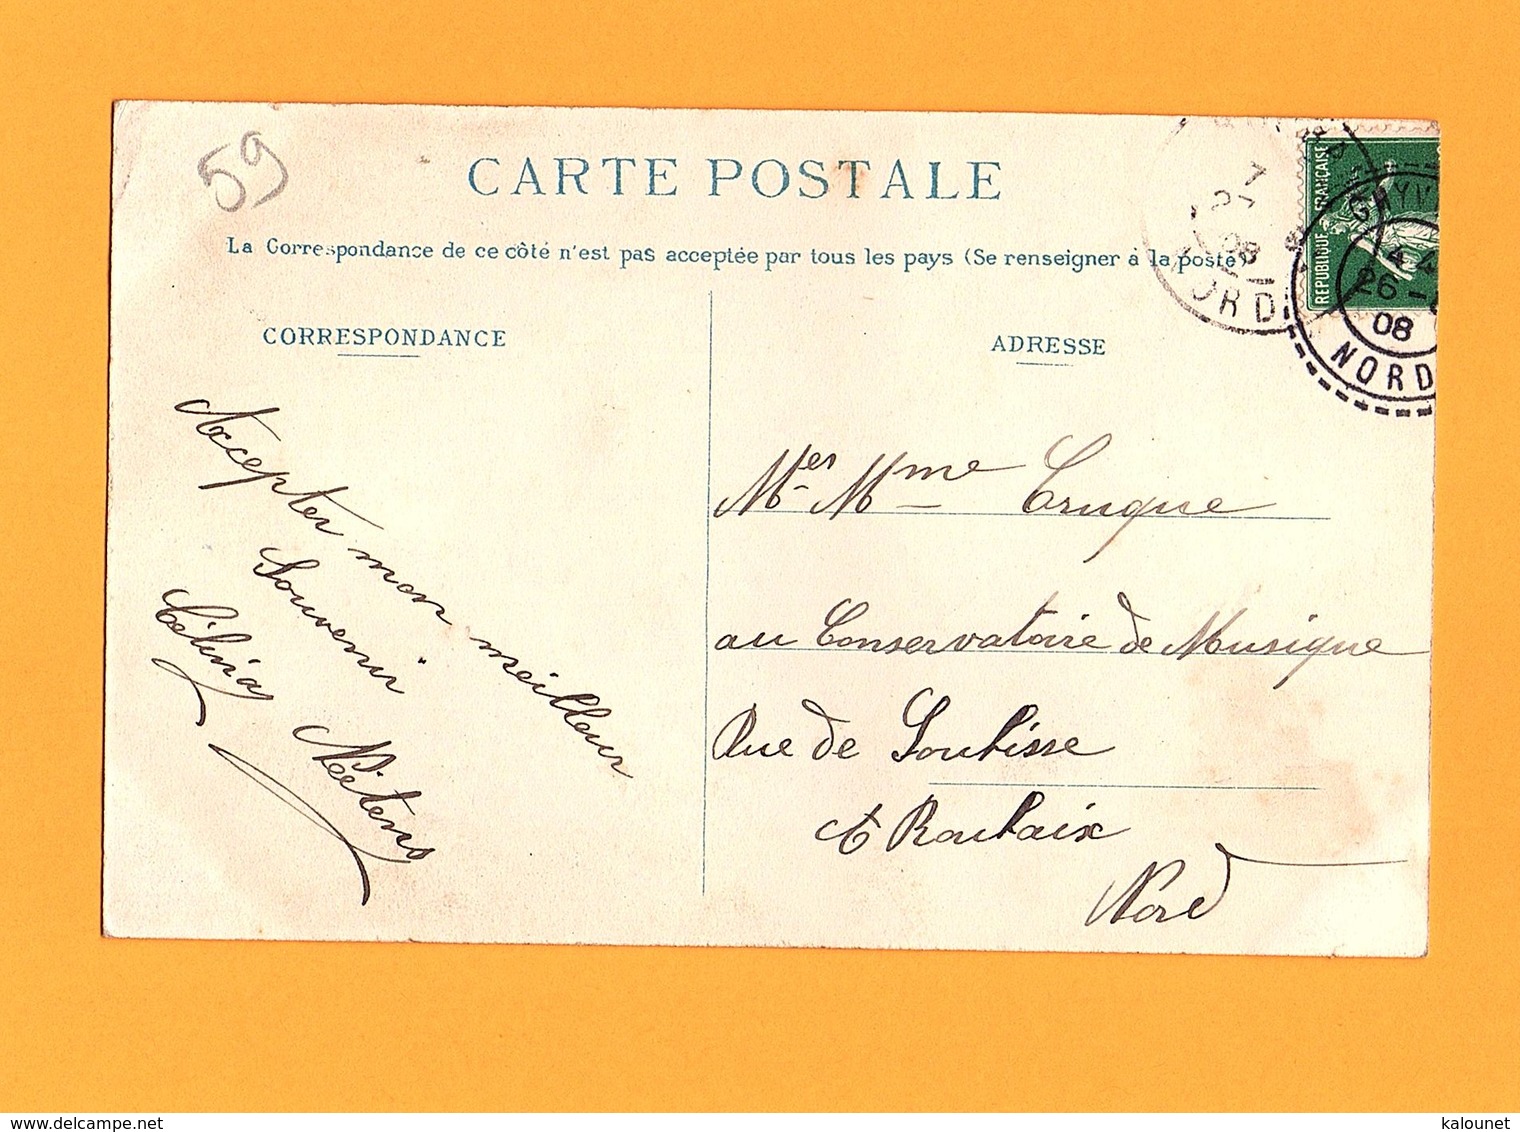 59
CARTE POSTALE
La Correspondance de ce côté n'est pas acceptée par tous les pays (Se renseigner à la poste)
CORRESPONDANCE
ADRESSE
RÉPUBLIQUE FRANÇAISE
7
08
NORD
GHYV
26
08
NORD
Accepter mon meilleur
Souvenir
Célina
Mer Mme Cruque
au Conservatoire de Musique
Rue de Soubisse
à Roubaix
Nord
www.delcampe.net
kalounet